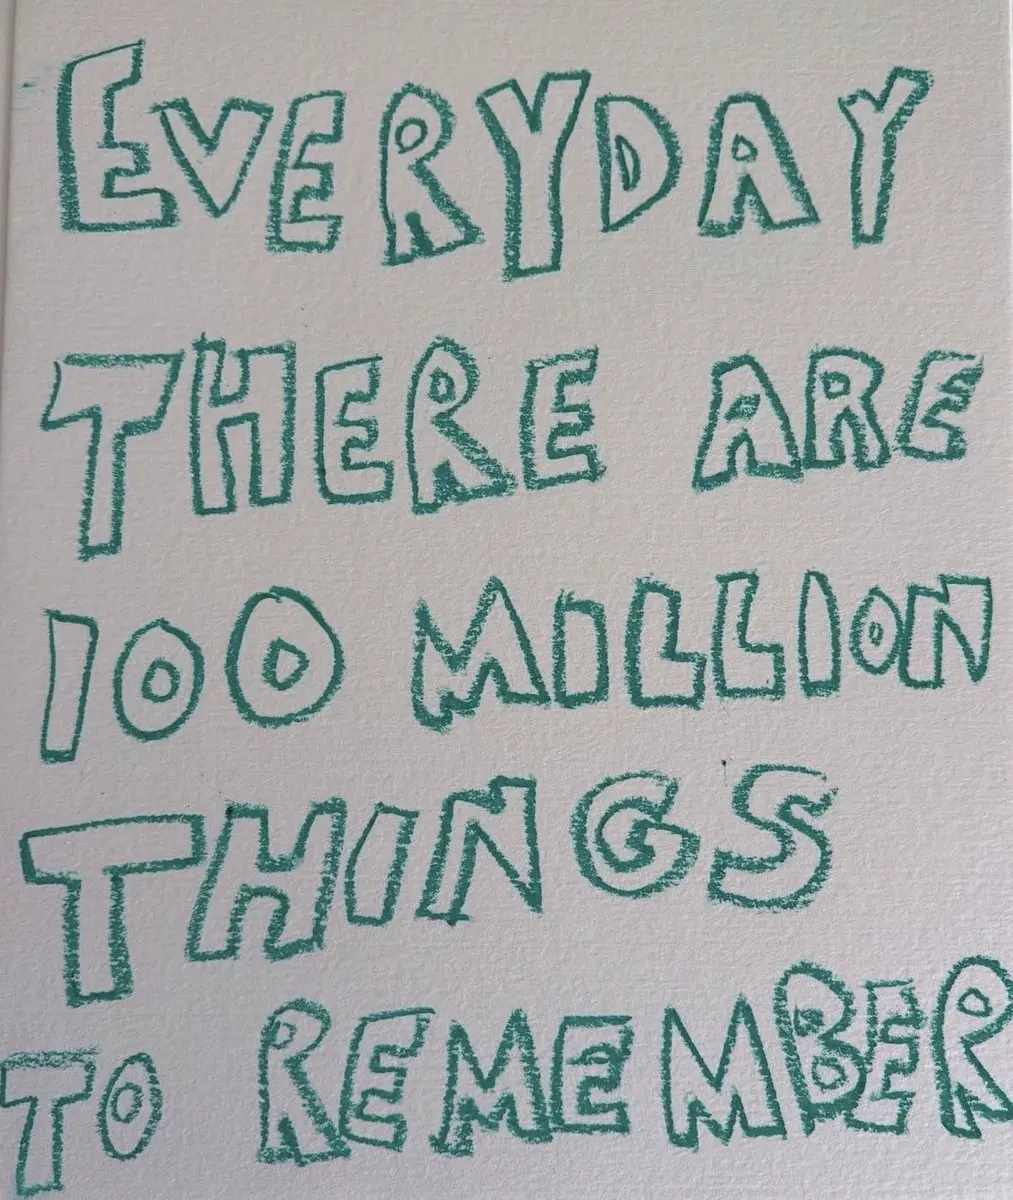 EVERYDAY
THERE ARE
100 MILLION
THINGS
TO REMEMBER